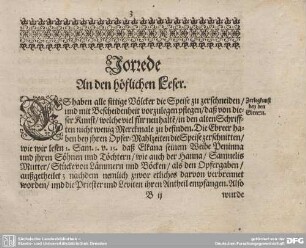 3
Vorrede
An den höflichen Leser.
ES haben alle sittige Völcker die Speise zu zerschneiden /
und mit Bescheidenheit vorzulegen pflegen / daß von die-
ser Kunst / welche wir hier behalten / in den alten Schrif-
ten nicht wenig Merckmale zu befinden. Die Ebreer ha-
ben bey ihren Opfer-Mahlzeiten die Speise zerschnitten /
wie wir lesen 1. Sam. 1. v. daß Elkana seinem Weibe Peninna
und ihren Söhnen und Töchtern / wie auch der Hanna / Samuelis
Mutter / Stücke von Lämmern und Böcken / als den Opfergaben /
außgetheilet nachdem nemlich zuvor etliches darvon verbrennet
worden / und die Priester und Leviten ihren Antheil empfangen. Also
B ij
wurde
Zerlegkunst
bey den
Ebreern.